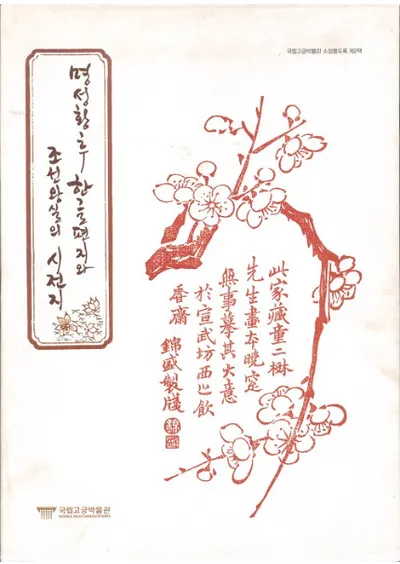 국립고궁박물관 소장품도록 제2책
명성황후 한글편지와
조선왕실의 시전지
此家藏董二樹
先生畫本曉窓
無事摹其大意
於宣武坊西之飲
香齋 錦盛製牋
국립고궁박물관
NATIONAL PALACE MUSEUM OF KOREA